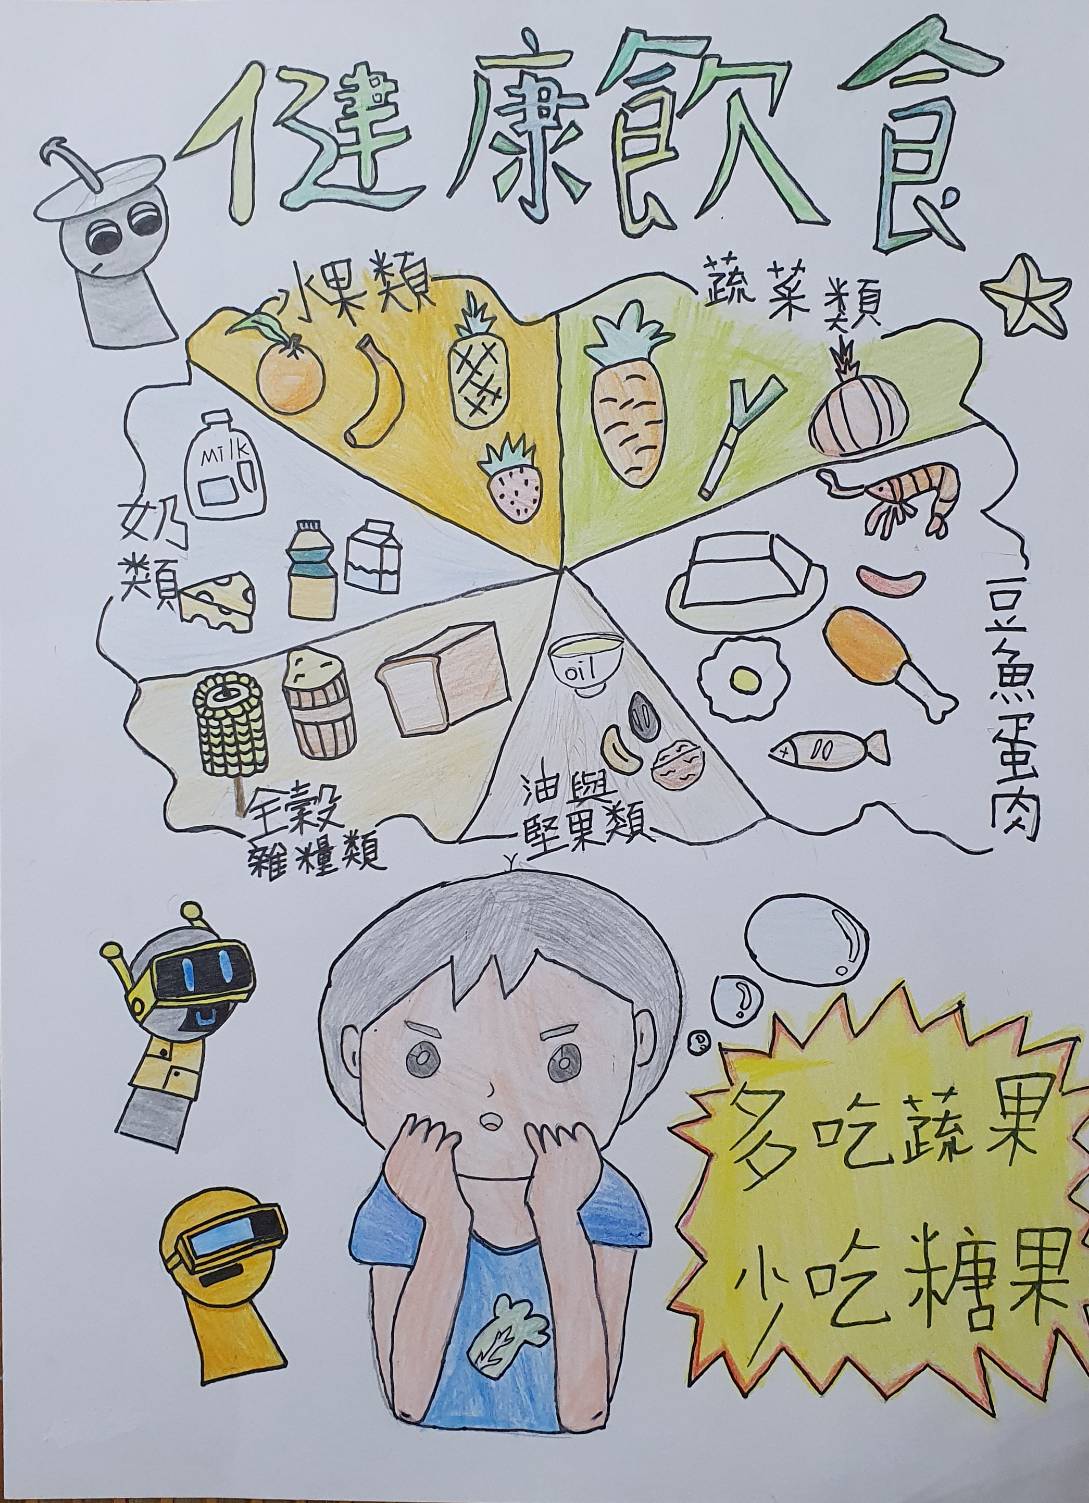 健康飲食
水果類
蔬菜類
milk
奶
類
豆魚蛋肉
oil
油與
堅果類
全穀
雜糧類
多吃蔬果
少吃糖果